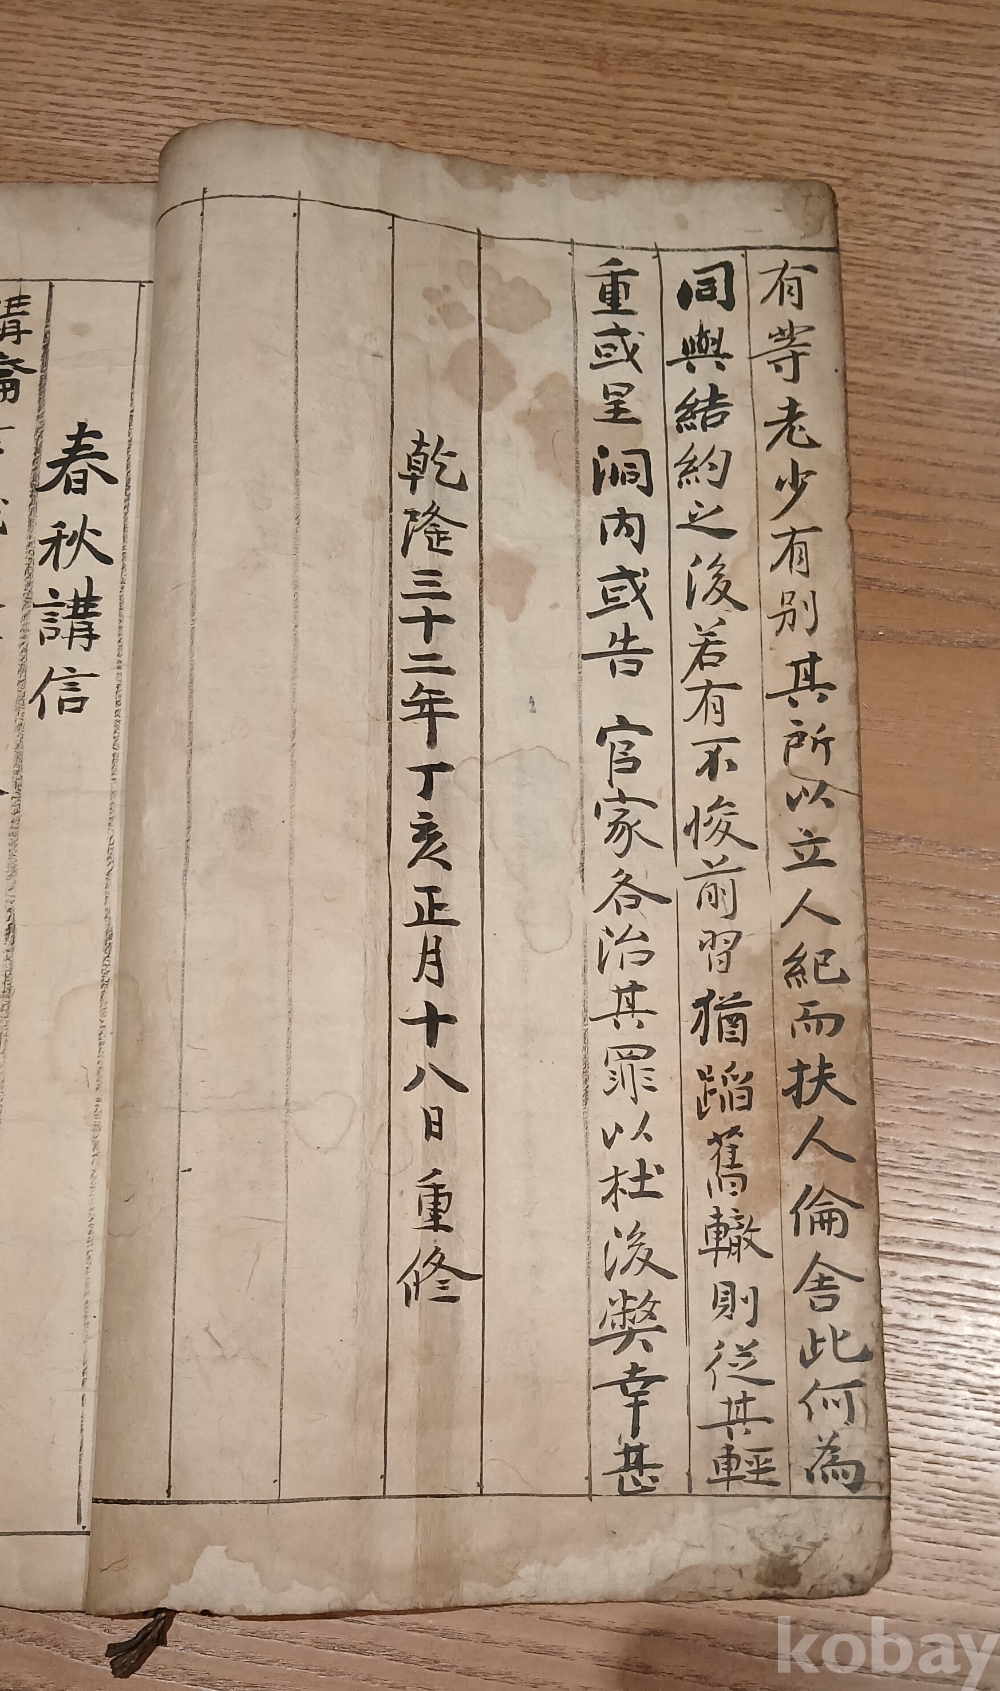 有等老少有別其所以立人紀而扶人倫舎此何為
同與結約之後若有不悛前習猶蹈舊轍則從其輕
重或呈洞內或告 官家各治其罪以杜後弊幸甚
乾隆三十二年丁亥正月十八日重修
春秋講信
講
kobay